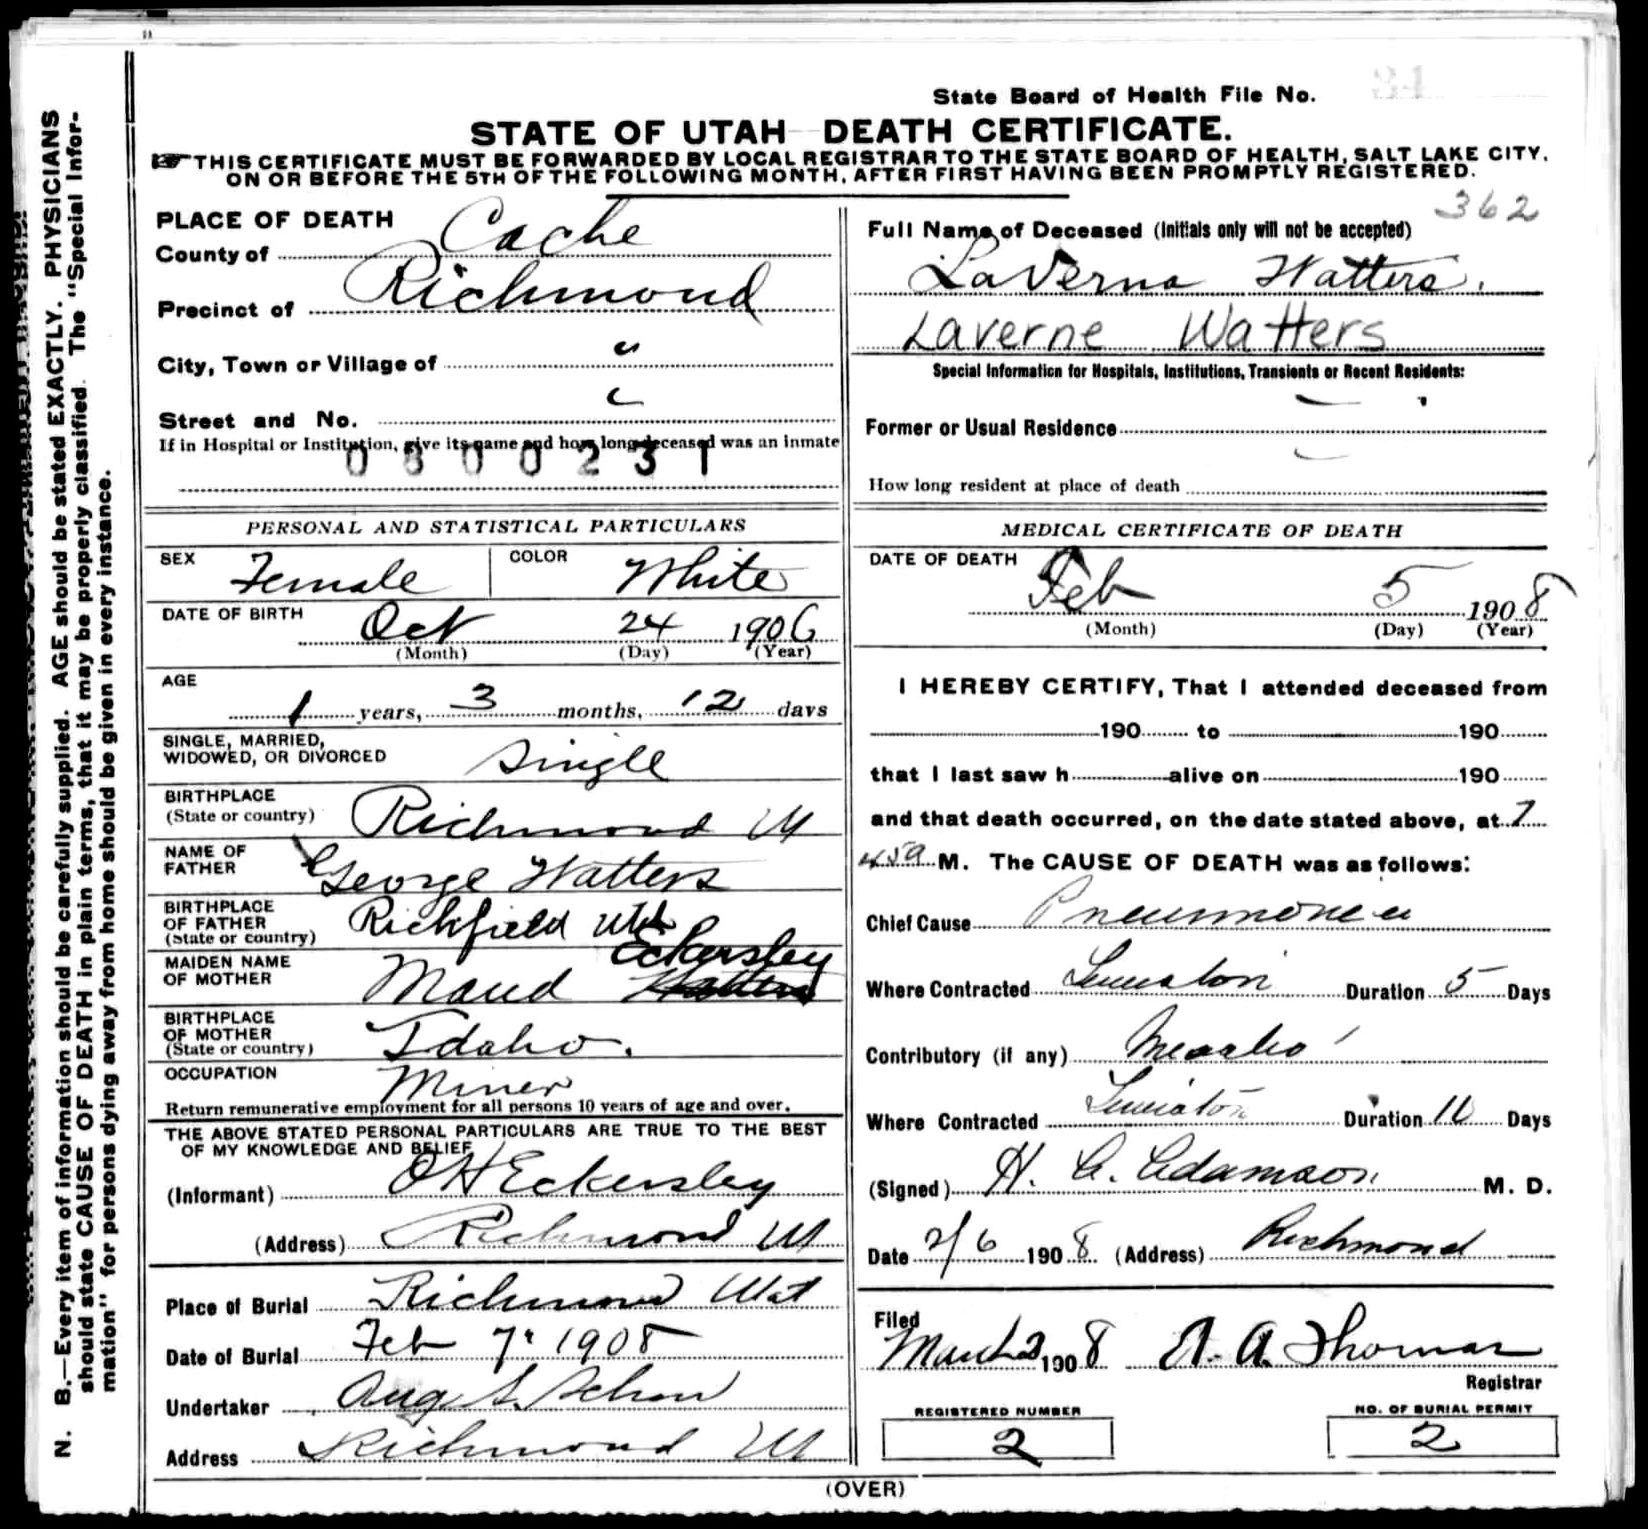 State Board of Health File No. 34
STATE OF UTAH DEATH CERTIFICATE.
THIS CERTIFICATE MUST BE FORWARDED BY LOCAL REGISTRAR TO THE STATE BOARD OF HEALTH, SALT LAKE CITY,
ON OR BEFORE THE 5TH OF THE FOLLOWING MONTH, AFTER FIRST HAVING BEEN PROMPTLY REGISTERED.
362
PLACE OF DEATH
County of Cache
Precinct of Richmond
City, Town or Village of "
Street and No.
If in Hospital or Institution, give its name and how long deceased was an inmate
0800231
PERSONAL AND STATISTICAL PARTICULARS
SEX Female COLOR White
DATE OF BIRTH Oct 24 1906
(Month) (Day) (Year)
AGE
1 years, 3 months, 12 days
SINGLE, MARRIED,
WIDOWED, OR DIVORCED Single
BIRTHPLACE
(State or country) Richmond Ut
NAME OF
FATHER George Watters
BIRTHPLACE
OF FATHER
(State or country) Richfield Utah
MAIDEN NAME
OF MOTHER Maud Eckersley Watters
BIRTHPLACE
OF MOTHER
(State or country) Idaho.
OCCUPATION Miner
Return remunerative employment for all persons 10 years of age and over.
THE ABOVE STATED PERSONAL PARTICULARS ARE TRUE TO THE BEST
OF MY KNOWLEDGE AND BELIEF
(Informant) O H Eckersley
(Address) Richmond Ut
Place of Burial Richmond Utat
Date of Burial Feb 7" 1908
Undertaker Aug S. Schow
Address Richmond Ut
Full Name of Deceased (Initials only will not be accepted)
LaVerna Watters.
Laverne Watters
Special Information for Hospitals, Institutions, Transients or Recent Residents:
Former or Usual Residence
How long resident at place of death
MEDICAL CERTIFICATE OF DEATH
DATE OF DEATH
Feb 5 1908
(Month) (Day) (Year)
I HEREBY CERTIFY, That I attended deceased from
190 to 190
that I last saw h alive on 190
and that death occurred, on the date stated above, at 7
45 a M. The CAUSE OF DEATH was as follows:
Chief Cause Pneumonea
Where Contracted Lewiston Duration 5 Days
Contributory (if any) Measles
Where Contracted Lewiston Duration Days
(Signed) H. G. Adamson M. D.
Date 2/6 1908 (Address) Richmond
Filed
March 1908 A. A. Thomas
Registrar
REGISTERED NUMBER
2
NO. OF BURIAL PERMIT
2
(OVER)
N. B.—Every item of information should be carefully supplied. AGE should be stated EXACTLY. PHYSICIANS
should state CAUSE OF DEATH in plain terms, that it may be properly classified. The "Special Infor-
mation" for persons dying away from home should be given in every instance.